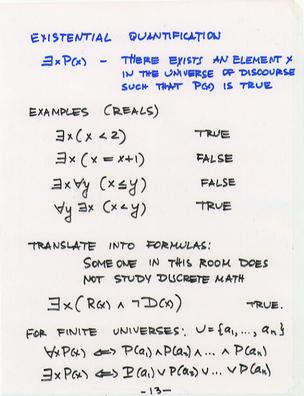 EXISTENTIAL QUANTIFICATION
∃xP(x) - THERE EXISTS AN ELEMENT X
IN THE UNIVERSE OF DISCOURSE
SUCH THAT P(x) IS TRUE
EXAMPLES (REALS)
∃x(x < 2) TRUE
∃x(x = x+1) FALSE
∃x∀y (x≤y) FALSE
∀y ∃x (x<y) TRUE
TRANSLATE INTO FORMULAS:
SOMEONE IN THIS ROOM DOES
NOT STUDY DISCRETE MATH
∃x(R(x) ∧ ¬D(x)) TRUE.
FOR FINITE UNIVERSES: U={a₁,...,aₙ}
∀xP(x) ⇔ P(a₁)∧P(a₂)∧...∧ P(aₙ)
∃xP(x) ⇔ P(a₁)∨P(a₂)∨...∨P(aₙ)
-13-